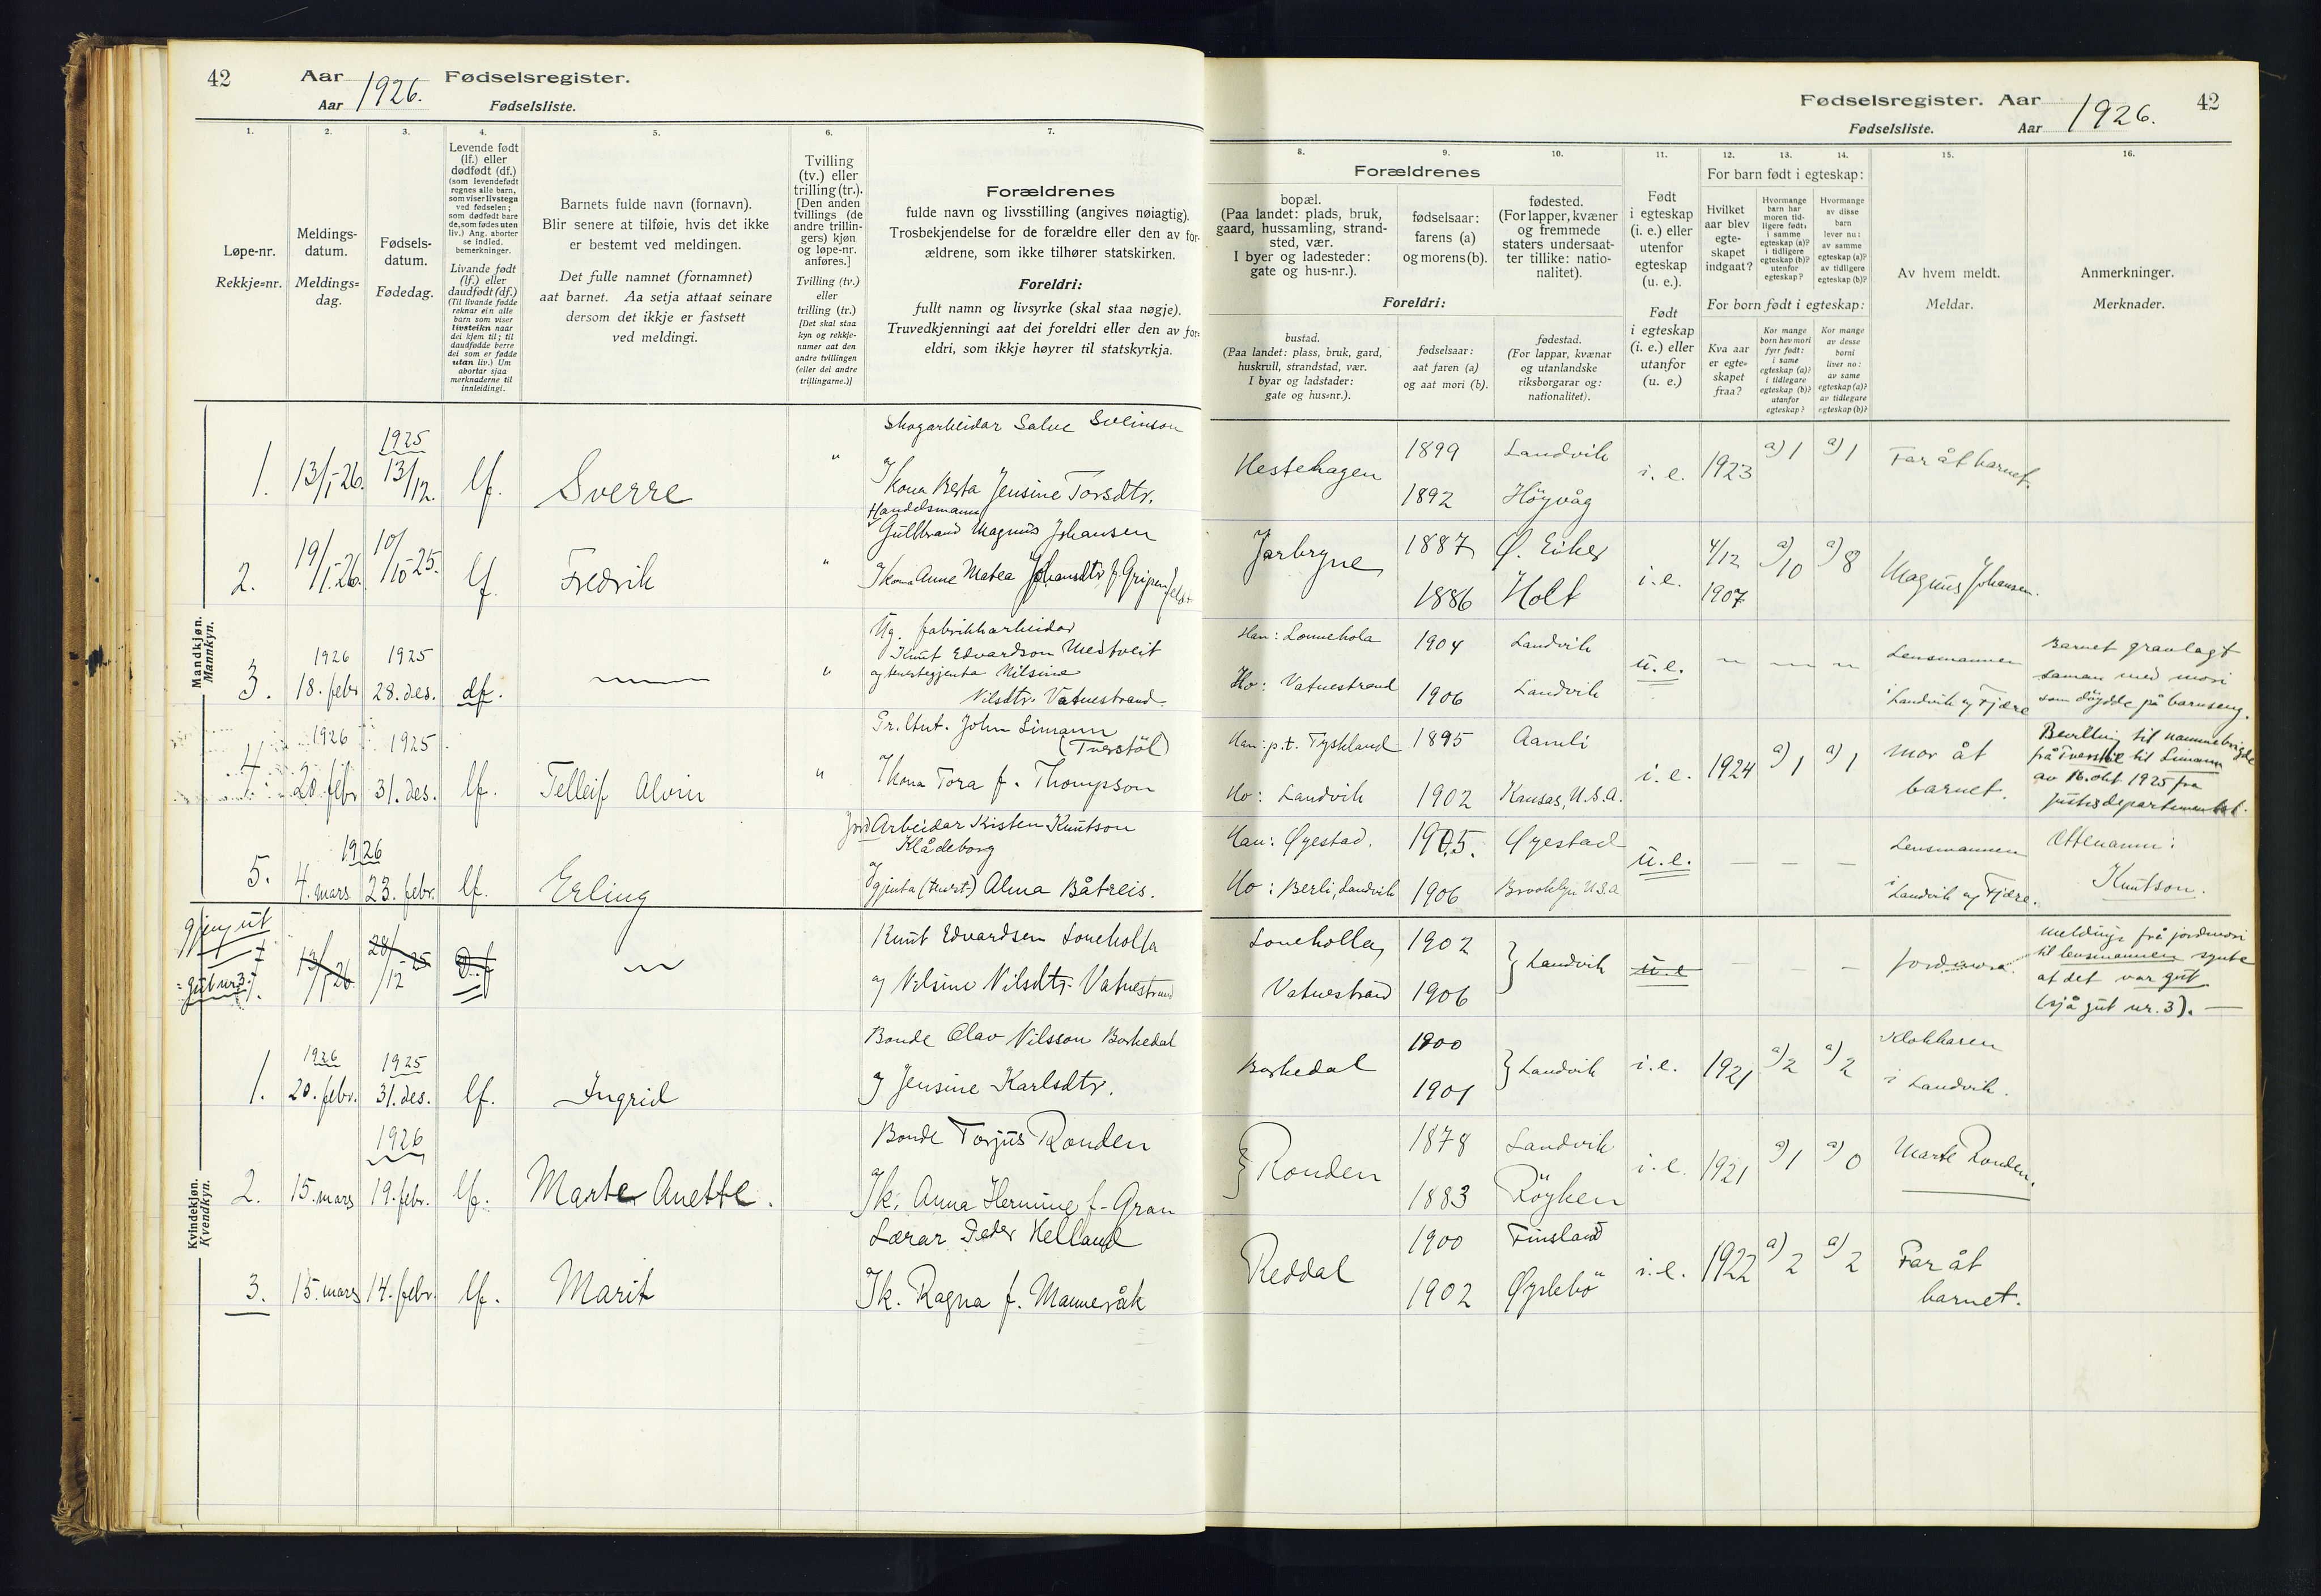 42
Aar 1926. Fødselsregister.
Aar
Fødselsliste.
1.
2.
3.
4.
5.
6.
7.
Løpe-nr.
Rekkje=nr.
Meldings-
datum.
Meldings=
dag.
Fødsels-
datum.
Fødedag.
Levende født
(lf.) eller
dødfødt (df.)
(som levendefødt
regnes alle barn,
som viser livstegn
ved fødselen;
som dødfødt bare
de, som fødes uten
liv.) Ang. aborter
se indled.
bemerkninger.
Livande født
(lf.) eller
daudfødt (df.)
(Til livande fødde
reknar ein alle
barn som viser
livsteikn naar
dei kjem til; til
daudfødde berre
dei som er fødde
utan liv.) Um
abortar sjaa
merknaderne til
innleidingi.
Barnets fulde navn (fornavn).
Blir senere at tilføie, hvis det ikke
er bestemt ved meldingen.
Det fulle namnet (fornamnet)
aat barnet. Aa setja attaat seinare
dersom det ikkje er fastsett
ved meldingi.
Tvilling
(tv.) eller
trilling (tr.).
[Den anden
tvillings (de
andre trillin-
gers) kjøn
og løpe-nr.
anføres.]
Tvilling (tv.)
eller
trilling (tr.)
[Det skal staa
kyn og rekkje-
numer aat den
andre tvillingen
(eller dei andre
trillingarne.)]
Forældrenes
fulde navn og livsstilling (angives nøiagtig).
Trosbekjendelse for de forældre eller den av for-
ældrene, som ikke tilhører statskirken.
Foreldri:
fullt namn og livsyrke (skal staa nøgje).
Truvedkjenningi aat dei foreldri eller den av for-
eldri, som ikkje høyrer til statskyrkja.
Mandkjøn.
Mannkyn.
1925
1. 13/1-26. 13/12. lf. Sverre "
Skogarbeidar Salve Sveinson
og kona Berta Jensine Torsdtr.
2. 19/1-26. 10/10-25. lf Fredrik "
Handelsmann
Gullbrand Magnus Johansen
og kona Anne Matea Johansdtr f. Gripenfeldt
1926 1925
3. 18. febr 28. des. df. "
Ug. fabrikkarbeidar
Knut Edvardson Mestveit
og tenestegjenta Nilsine
Nilsdtr. Vatnestrand.
1926 1925
4. 20 febr 31. des. lf. Telleif Alvin "
Pr. ltnt. John Simann
(Tverstöl)
og kona Tora f. Thompson
1926
5. 4. mars 23. febr. lf. Erling
Jord Arbeidar Kristen Knutson
Klådeborg
og gjenta (tenest.) Alma Båtreis.
Kvindekjøn.
Kvendkyn.
gjeng ut
= gut nr. 3
1. 13/1-26 28/12-25 D.f
Knut Edvardsen Loneholla
og Nilsine Nilsdtr. Vatnestrand
1926 1925
1. 20. febr. 31. des. lf. Ingrid
Bonde Olav Nilsson Barkedal
og Jensine Karlsdtr.
1926
2. 15. mars 19. febr. lf. Marte Anette.
Bonde Torjus Ronden
og k. Anna Hermine f. Gran
3. 15. mars 14. febr. lf. Marit
Lærar Peder Helland
og k. Ragna f. Mannesåk
Fødselsregister. Aar 1926. 42
Fødselsliste. Aar
8.
9.
10.
11.
12.
13.
14.
15.
16.
Forældrenes
bopæl.
(Paa landet: plads, bruk,
gaard, hussamling, strand-
sted, vær.
I byer og ladesteder:
gate og hus-nr.).
fødselsaar:
farens (a)
og morens (b).
fødested.
(For lapper, kvæner
og fremmede
staters undersaat-
ter tillike: natio-
nalitet).
Foreldri:
bustad.
(Paa landet: plass, bruk, gard,
huskrull, strandstad, vær.
I byar og ladstader:
gate og hus=nr.).
fødselsaar:
aat faren (a)
og aat mori (b).
fødestad.
(For lappar, kvænar
og utanlandske
riksborgarar og:
nationalitet).
Født
i egteskap
(i. e.) eller
utenfor
egteskap
(u. e.).
Født
i egteskap
(i. e.) eller
utanfor
(u. e.)
For barn født i egteskap:
Hvilket
aar blev
egte-
skapet
indgaat?
Hvormange
barn har
moren tid-
ligere født:
i samme
egteskap (a)?
i tidligere
egteskap (b)?
utenfor
egteskap?
Hvormange
av disse
barn
lever nu:
av samme
egteskap (a)?
av tidligere
egteskap (b)?
For born født i egteskap:
Kva aar
er egte=
skapet
fraa?
Kor mange
born hev mori
fyrr født:
i same
egteskap (a)?
i tidlegare
egteskap (b)?
utanfor
egteskap?
Kor mange
av desse
borni
liver no:
av same
egteskap (a)?
av tidlegare
egteskap (b)?
Av hvem meldt.
Meldar.
Anmerkninger.
Merknader.
Hestehagen 1899 Landvik i. e. 1923 a) 1 a) 1 Far åt barnet.
1892 Höyvåg
Jarbryne 1887 Ø. Eiker i. e. 4/12 1907 a) 10 a) 8 Magnus Johansen.
1886 Holt
Han: Lonnehola 1904 Landvik u. e. Lensmannen
Ho: Vatnestrand 1906 Landvik i Landvik og Fjære
Barnet gravlagt
saman med mori
som döydde på barnseng.
Han: p.t. Tyskland 1895 Aamli i. e. 1924 a) 1 a) 1 Mor åt
Ho: Landvik 1902 Kansas, U.S.A. barnet.
Bevilling til namnebrigde
frå Tverstöl til Simann
av 16. okt 1925 fra
justisdepartementet.
Han: Øyestad. 1905. Øyestad u. e. — — — Lensmannen
Ho: Berli, Landvik 1906 Brooklyn U.S.A i Landvik og Fjære.
Ettenamn:
Knutson.
Loneholla, 1902 Landvik u. e — — — Jordmora.
Vatnestrand 1906
Meldings frå jordmori
til lensmannen synte
at det var gut
(sjå gut nr. 3). —
Barkedal 1900 Landvik i. e. 1921 a) 2 a) 2 Klokkaren
1901 i Landvik.
Ronden 1878 Landvik i. e. 1921 a) 1 a) 0 Marte Ronden.
1883 Röyken
Reddal 1900 Finsland i. e. 1922 a) 2 a) 2 Far åt
1902 Øyslebö barnet.